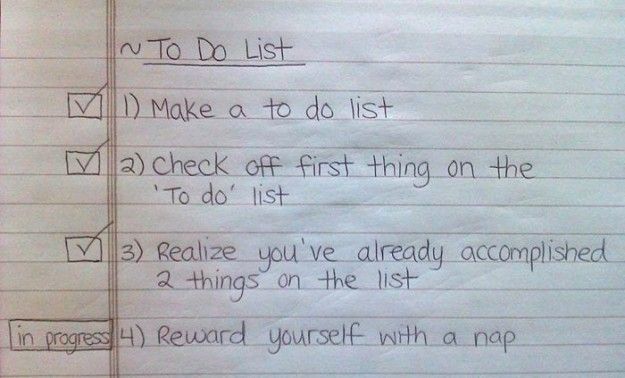 ~ To Do List
1) Make a to do list
2) Check off first thing on the
'To do' list
3) Realize you've already accomplished
2 things on the list
in progress 4) Reward yourself with a nap